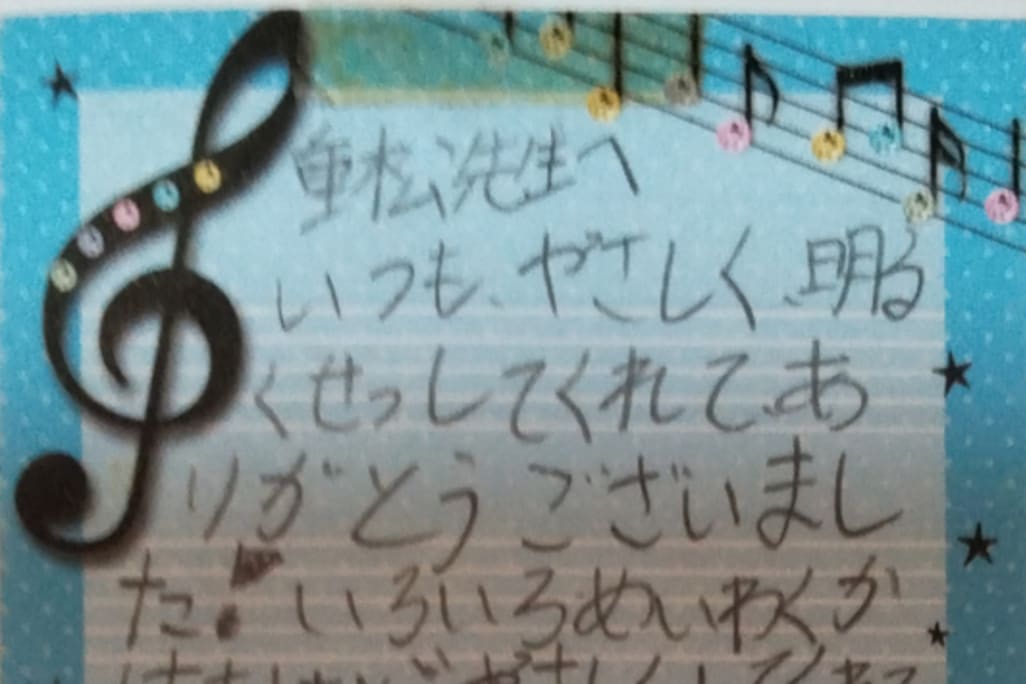 重松先生へ
いつも、やさしく、明る
くせっしてくれて、あ
りがとうございまし
た!いろいろめいわくか